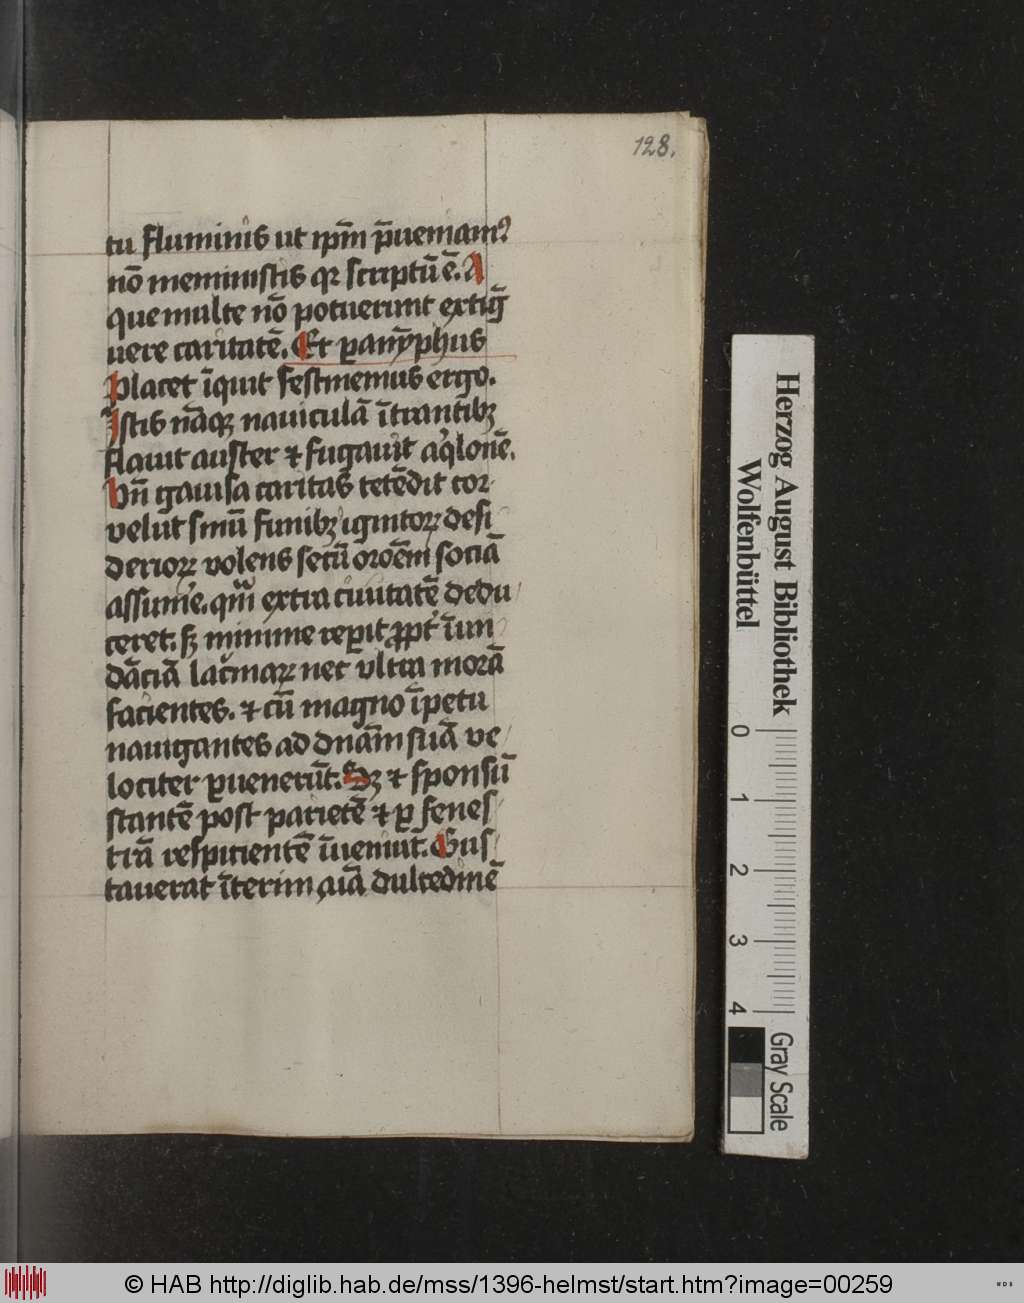 128.
tu fluminis ut ip̅m p̅ueniam?
no̅ meministis qr scriptu̅ e̅. A
que multe no̅ potuerunt exti̅g
uere caritate̅. Et ꝑany̅phus
Placet i̅quit festinemus ergo.
Istis na̅qꝫ nauicula̅ i̅trantibꝫ
flauit auster ⁊ fugauit aq̓lone̅.
Vn̅ gauisa caritas tete̅dit cor
velut sinu̅ funibꝫ ignitoꝝ desi
derioꝝ volens secu̅ oro̅em socia̅
assume̓. qm̅ extra ciuitate̅ dedu
ceret. sꝫ minime reꝑit ꝓpt̓ i̅un
da̅cia̅ lac̓maꝝ nec vltra mora̅
facientes. ⁊ cu̅ magno i̅petu
nauigantes ad dn̅am sua̅ ve
lociter ꝑueneru̅t. Sꝫ ⁊ sponsu̅
stante̅ post pariete̅ ⁊ ꝑ fenes
tra̅ respiciente̅ i̅ueniut. Gus
tauerat i̅terim aia̅ dulcedine̅
Herzog August Bibliothek
Wolfenbüttel
0 1 2 3 4
Gray Scale
© HAB http://diglib.hab.de/mss/1396-helmst/start.htm?image=00259